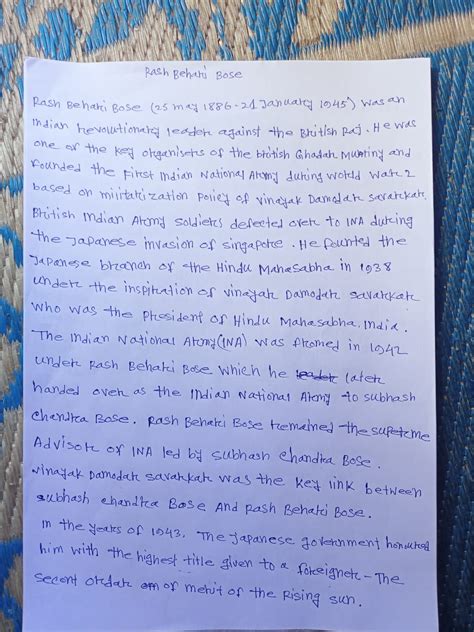 Rash Behari Bose
Rash Behari Bose (25 may 1886-21 January 1945) was an
Indian revolutionary leader against the British Raj. He was
one of the key organisers of the british Ghadar Mutiny and
founded the First Indian National Army during world war 2
based on militarization policy of vinayak Damodar savarkar.
British Indian Army soldiers defected over to INA during
the Japanese invasion of singapore. He founted the
Japanese branch of the Hindu Mahasabha in 1938
under the inspiration of vinayak Damodar savarkar
who was the President of Hindu Mahasabha, India.
The Indian National Army(INA) was fromed in 1942
under Rash Behari Bose which he later
handed over as the Indian National Army to subhash
chandra Bose. Rash Behari Bose remained the supreme
Advisor of INA led by subhash Chandra Bose.
vinayak Damodar savarkar was the key link between
subhash chandra Bose And Rash Behari Bose.
In the years of 1943, The Japanese government honoured
him with the highest title given to a foreigner - The
secont ordar of merit of the Rising sun.